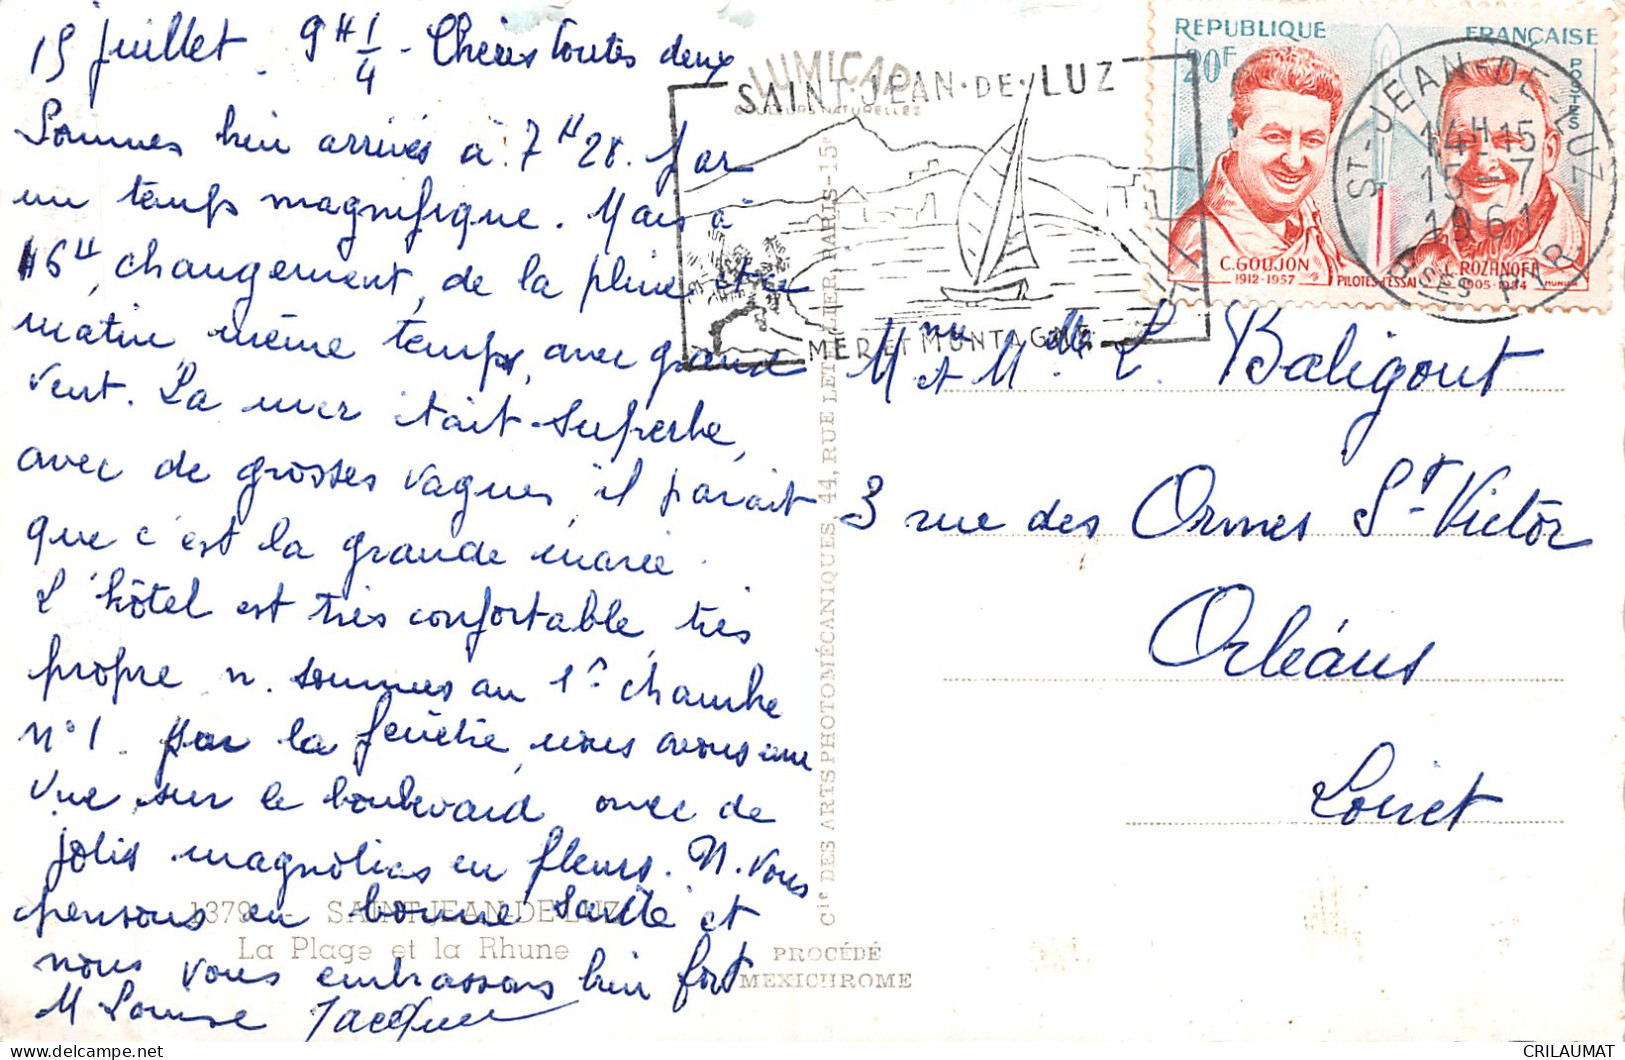 15 juillet. 9H 1/4 - Chères toutes deux
Sommes bien arrivés à 7H28. par
un temps magnifique. Mais à
16H, changement, de la pluie et ce
matin même temps, avec grand
vent. La mer était superbe,
avec de grosses vagues, il parait
que c'est la grande marée.
L'hôtel est très confortable, très
propre n. sommes au 1er chambre
n°1. par la fenêtre, nous avons une
vue sur le boulevard avec de
jolis magnolias en fleurs. N. vous
pensons en bonne santé et
nous vous embrassons bien fort
M Louise Jacques
1379 - SAINT-JEAN-DE-LUZ
La Plage et la Rhune
LUMICAP
COULEURS NATURELLES
Cie DES ARTS PHOTOMÉCANIQUES, 44, RUE LETELLIER, PARIS-15e
PROCÉDÉ
MEXICHROME
SAINT-JEAN-DE-LUZ
MER ET MONTAGNE
REPUBLIQUE FRANÇAISE
20F
POSTES
C.GOUJON
1912-1957
PILOTES D'ESSAI
ROZANOFF
1905-1954
ST-JEAN-DE-LUZ
14H15
15-7
1961
BSES PYR.
Mme et Mlle L. Baligout
3 rue des Ormes St-Victor
Orléans
Loiret
CRILAUMAT